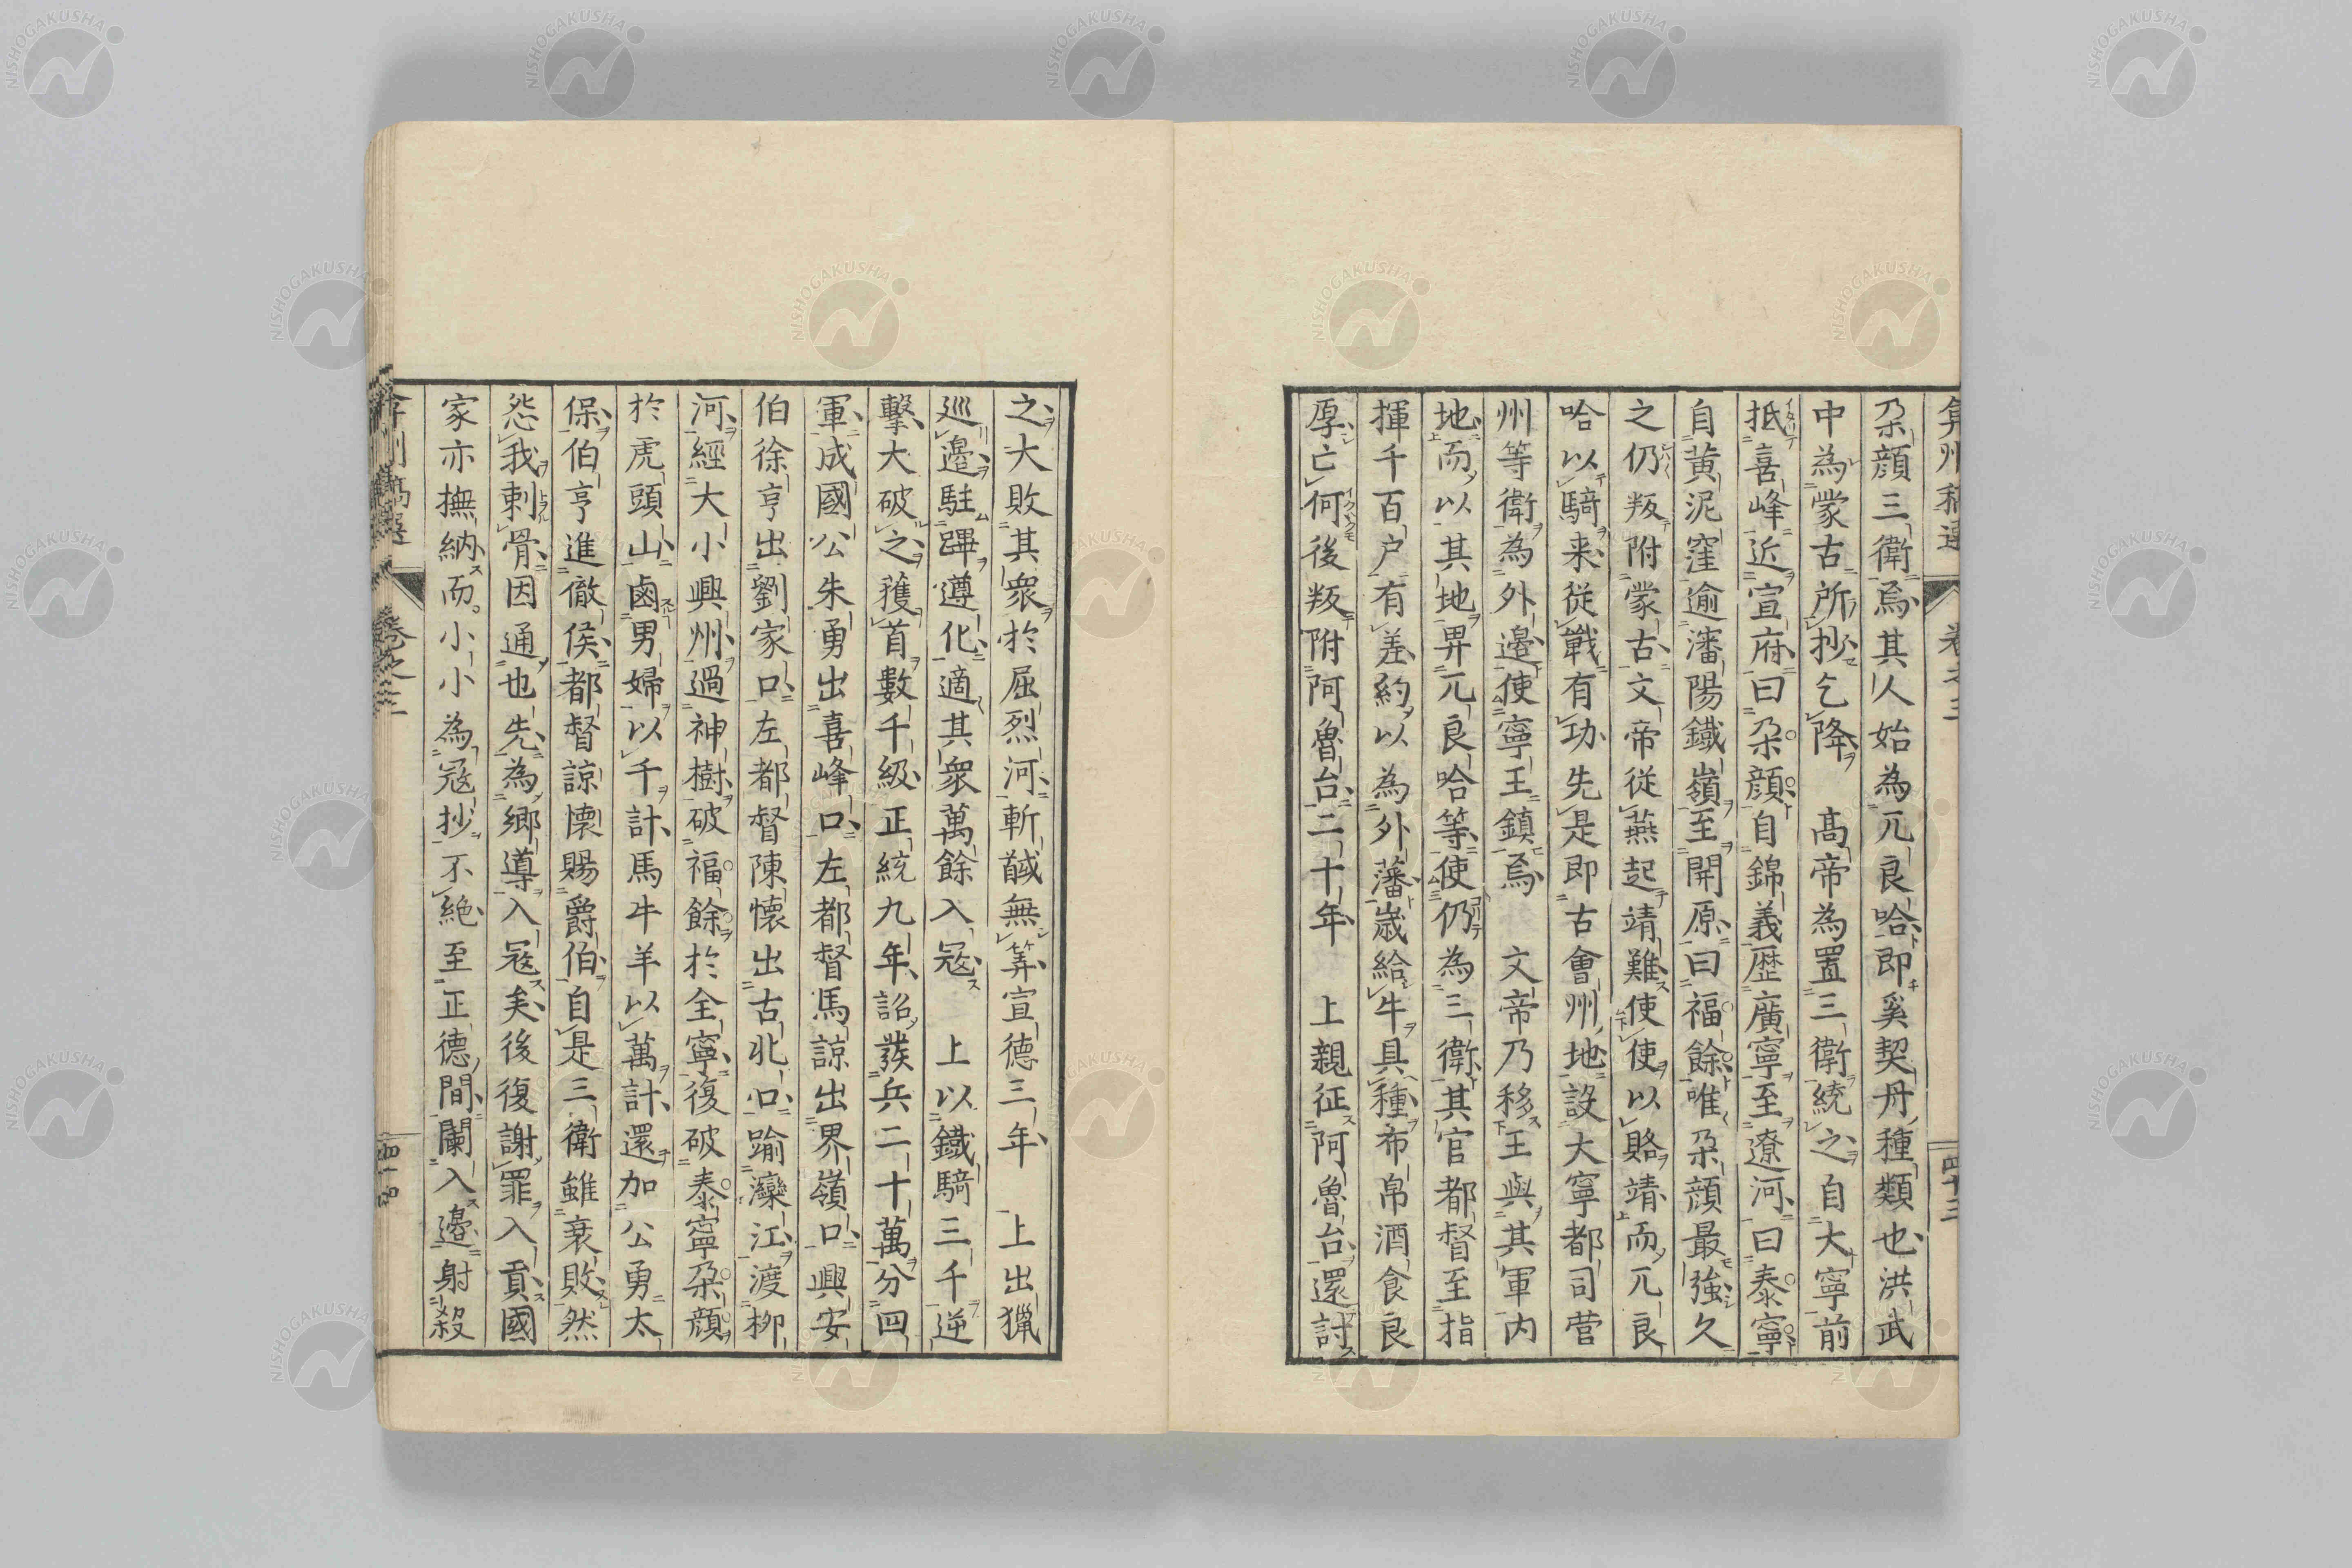 弇州稿選 卷之三 四十三
朶顔三衛焉其人始為兀良哈即奚契丹種類也洪武
中為蒙古所抄乞降 髙帝為置三衛統之自大寧前
抵喜峰近宣府曰朶顔自錦義歴廣寧至遼河曰泰寧
自黄泥窪逾瀋陽鐵嶺至開原曰福餘唯朶顔最強久
之仍叛附蒙古文帝従燕起靖難使使以賂靖而兀良
哈以騎来従戰有功先是即古會州地設大寧都司营
州等衛為外邊使寧王鎮焉 文帝乃移王與其軍内
地而以其地畀兀良哈等使仍為三衛其官都督至指
揮千百户有差約以為外藩歳給牛具種布帛酒食良
厚亡何後叛附阿魯台二十年 上親征阿魯台還討
之大敗其衆於屈烈河斬馘無筭宣德三年 上出獵
巡邊駐蹕遵化適其衆萬餘入冦 上以鐵騎三千逆
擊大破之獲首數千級正統九年詔發兵二十萬分四
軍成國公朱勇出喜峰口左都督馬諒出界嶺口興安
伯徐亨出劉家口左都督陳懷出古北口踰灤江渡栁
河經大小興州過神樹破福餘於全寧復破泰寧朶顔
於虎頭山鹵男婦以千計馬牛羊以萬計還加公勇太
保伯亨進徹侯都督諒懷賜爵伯自是三衛雖衰敗然
怨我刺骨因通也先為鄉導入冦矣後復謝罪入貢國
家亦撫納而小小為冦抄不絶至正德間闌入邊射殺
卷之三